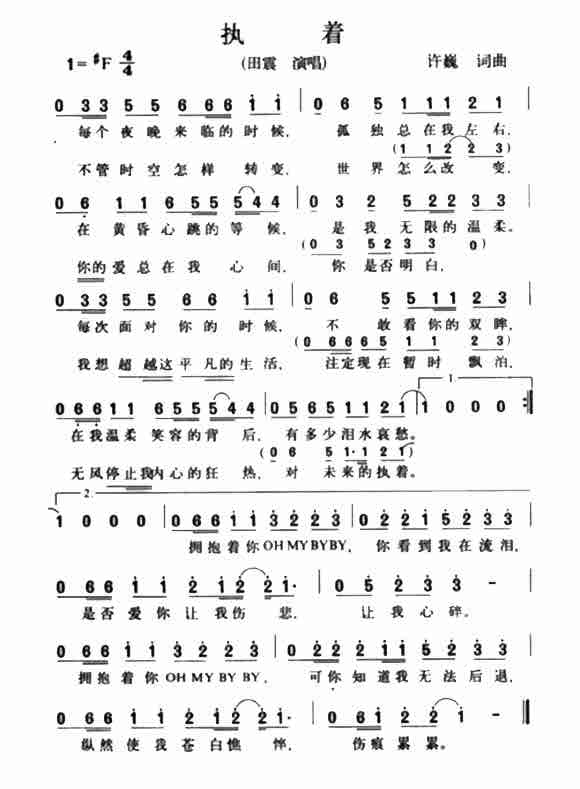 执 着
1=♯F 4/4 (田震 演唱) 许巍 词曲
0 3 3 5 5 6 6 6 i i | 0 6 5 i i i 2 1 |
每个夜晚来临的时候, 孤独总在我左右,
(1 1 2 2 3)
不管时空怎样 转变, 世界怎么改 变,
0 6 1 1 6 5 5 5 4 4 | 0 3 2 5 2 2 3 3 |
在黄昏心跳的等候, 是我无限的温柔。
(0 3 5 2 3 3 0)
你的爱总在我 心间, 你是否明白,
0 3 3 5 5 6 6 i i | 0 6 5 5 1 1 2 3 |
每次面对你的时候, 不敢看你的双眸,
(0 6 6 6 5 1 1 2 3)
我想超越这平凡的生活, 注定现在暂时飘泊,
1.
0 6 6 1 1 6 5 5 5 4 4 | 0 5 6 5 1 1 2 1 | 1 0 0 0 :||
在我温柔 笑容的背后, 有多少泪水哀愁。
(0 6 5 1·1 2 1)
无风停止我内心的狂热, 对未来的执着。
2.
1 0 0 0 | 0 6 6 i i 3 2 2 3 | 0 2 2 1 5 2 3 3 |
拥抱着你OH MY BYBY, 你看到我在流泪,
0 6 6 i i 2 i 2 2 i· | 0 5 2 3 3 - |
是否爱你让我伤悲, 让我心碎。
0 6 6 i i 3 2 2 3 | 0 2 2 2 1 1 5 2 3 3 |
拥抱着你OH MY BY BY, 可你知道我无法后退,
0 6 6 i i 2 i 2 2 i· | 0 6 i 2 2 i - ||
纵然使我苍白憔悴, 伤痕累累。